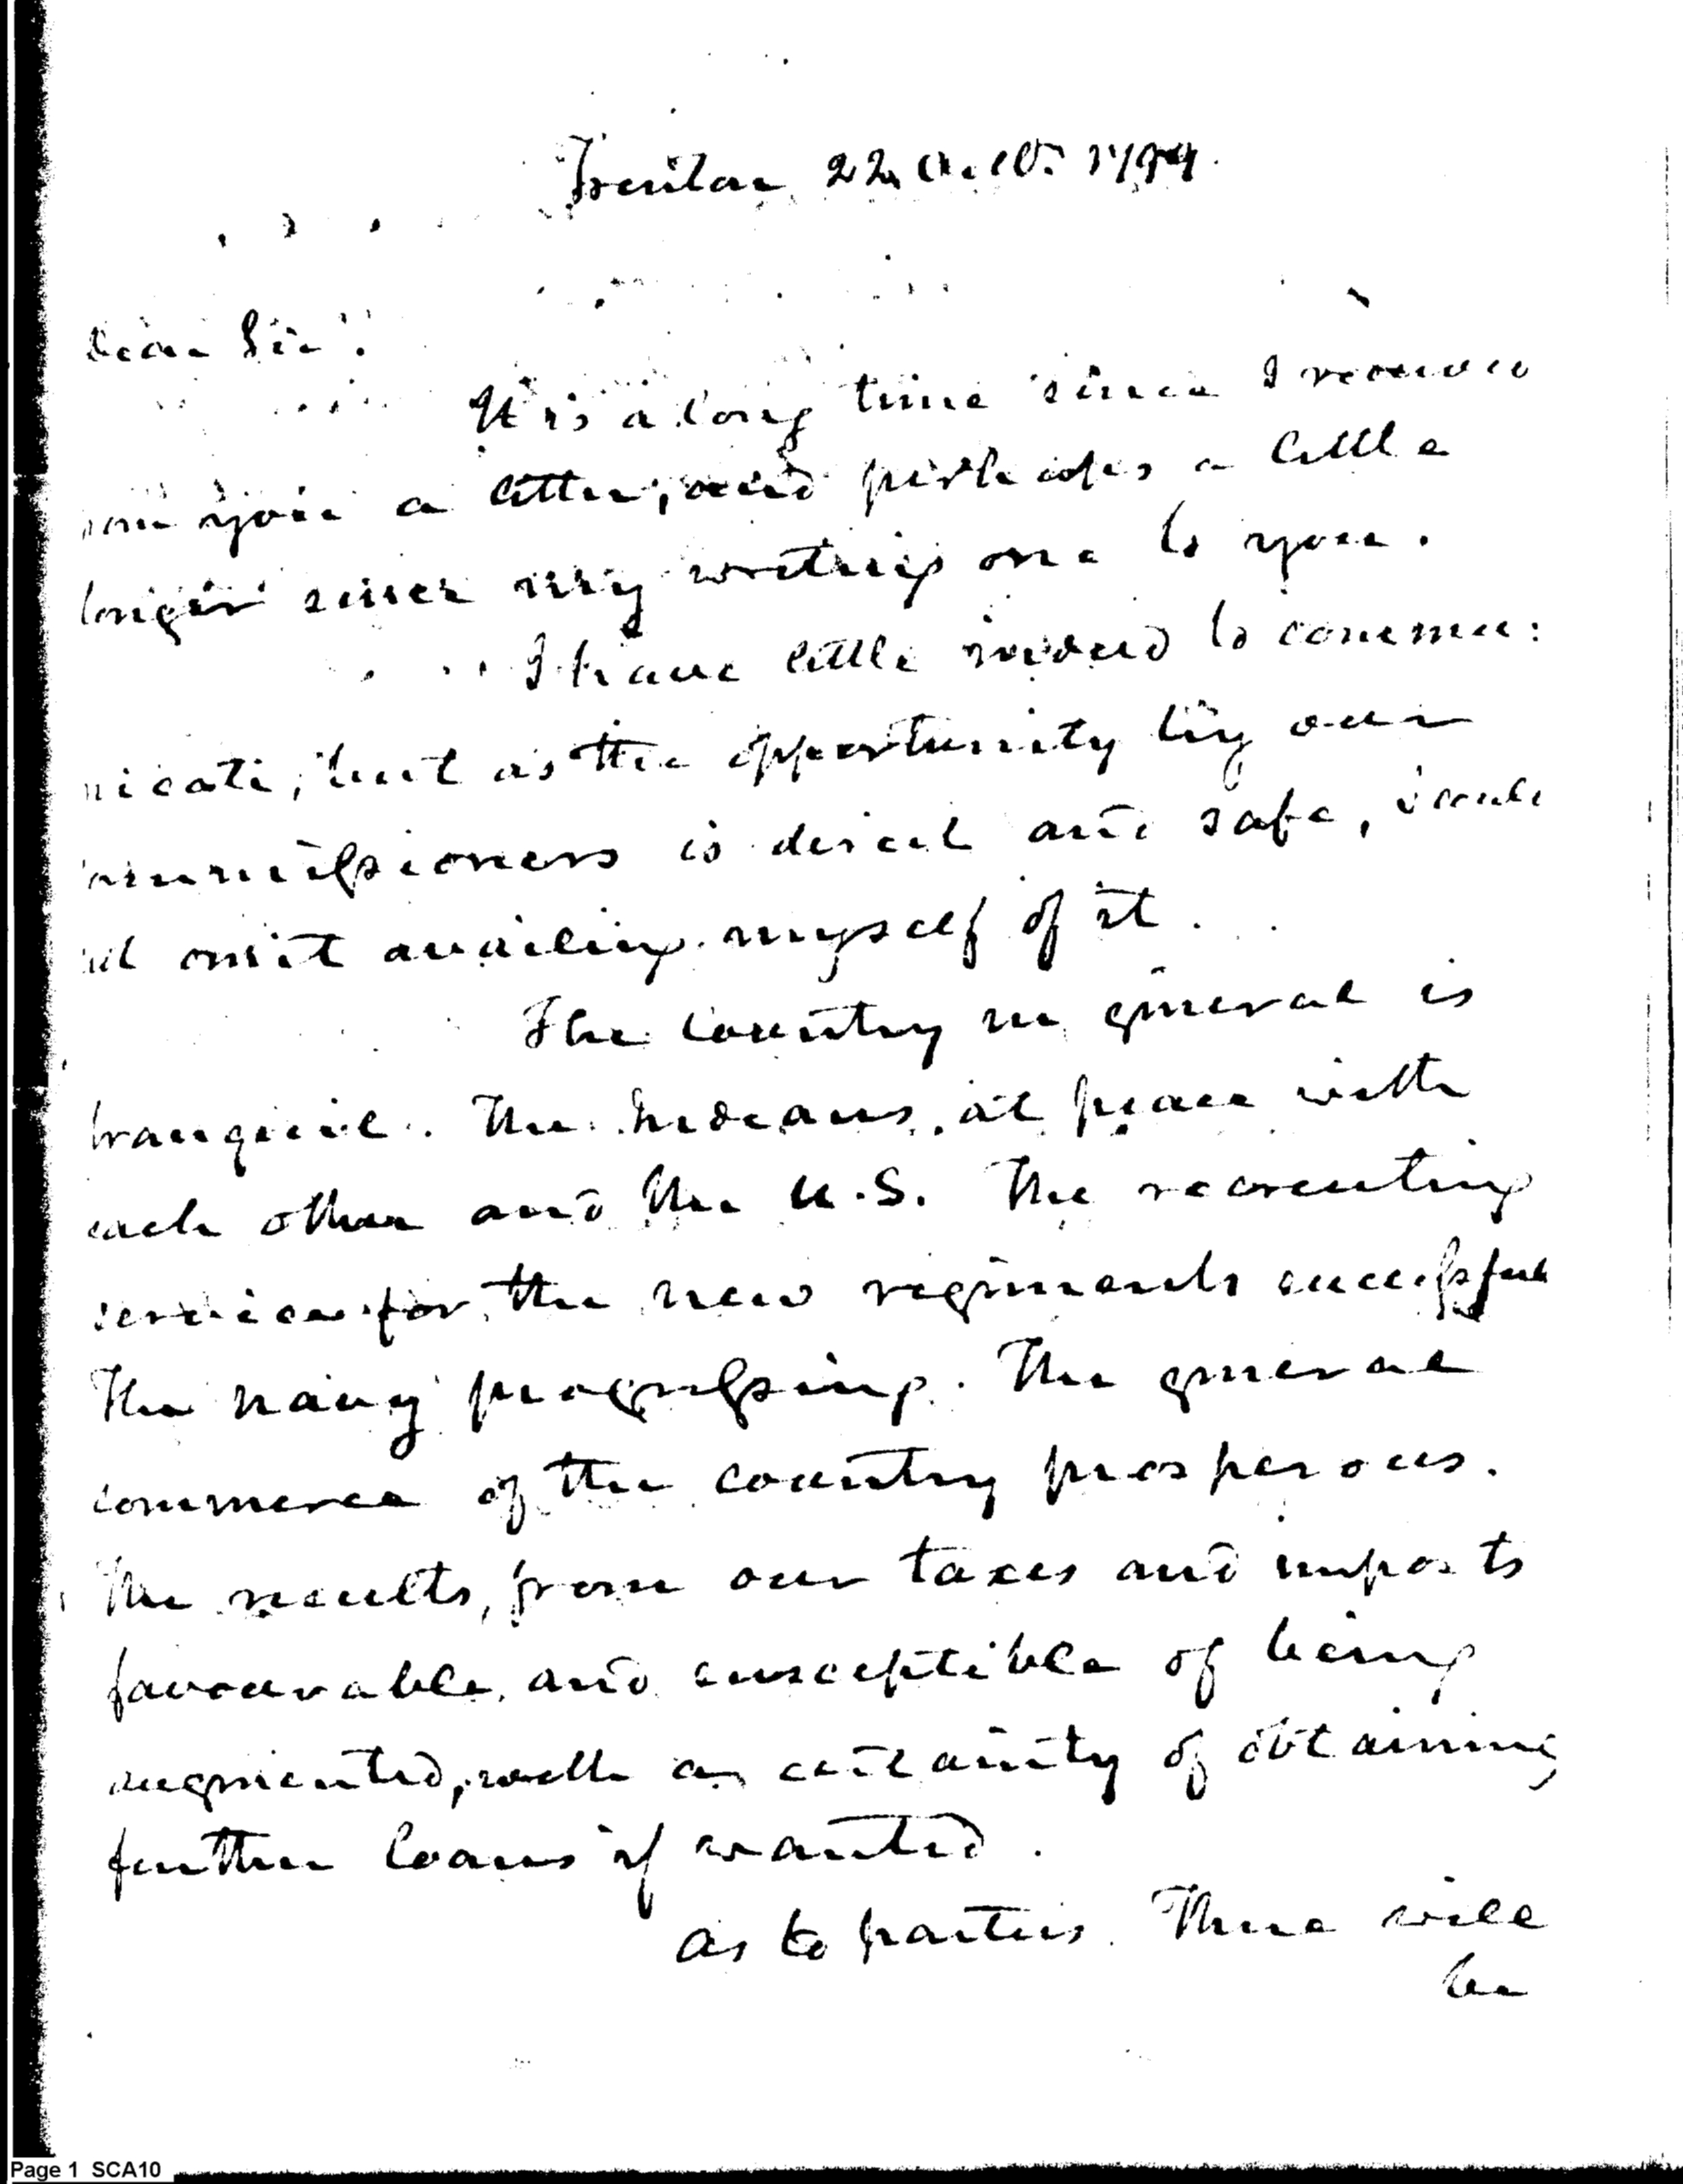 Trenton 22 Octo. 1799.
Dear Sir.
It is a long time since I received
from you a letter, and perhaps a little
longer since my writing one to you.
I have little indeed to commu:
nicate, but as the opportunity by our
commissioners is direct and safe, I could
not omit availing myself of it.
The country in general is
tranquil. The Indians at peace with
each other and the U.S. The recruiting
service for the new regiments successful
The navy progressing. The general
commerce of the country prosperous.
The results, from our taxes and imposts
favourable, and susceptible of being
augmented, with a certainty of obtaining
further loans if wanted.
As to parties. There will
be
Page 1 SCA10